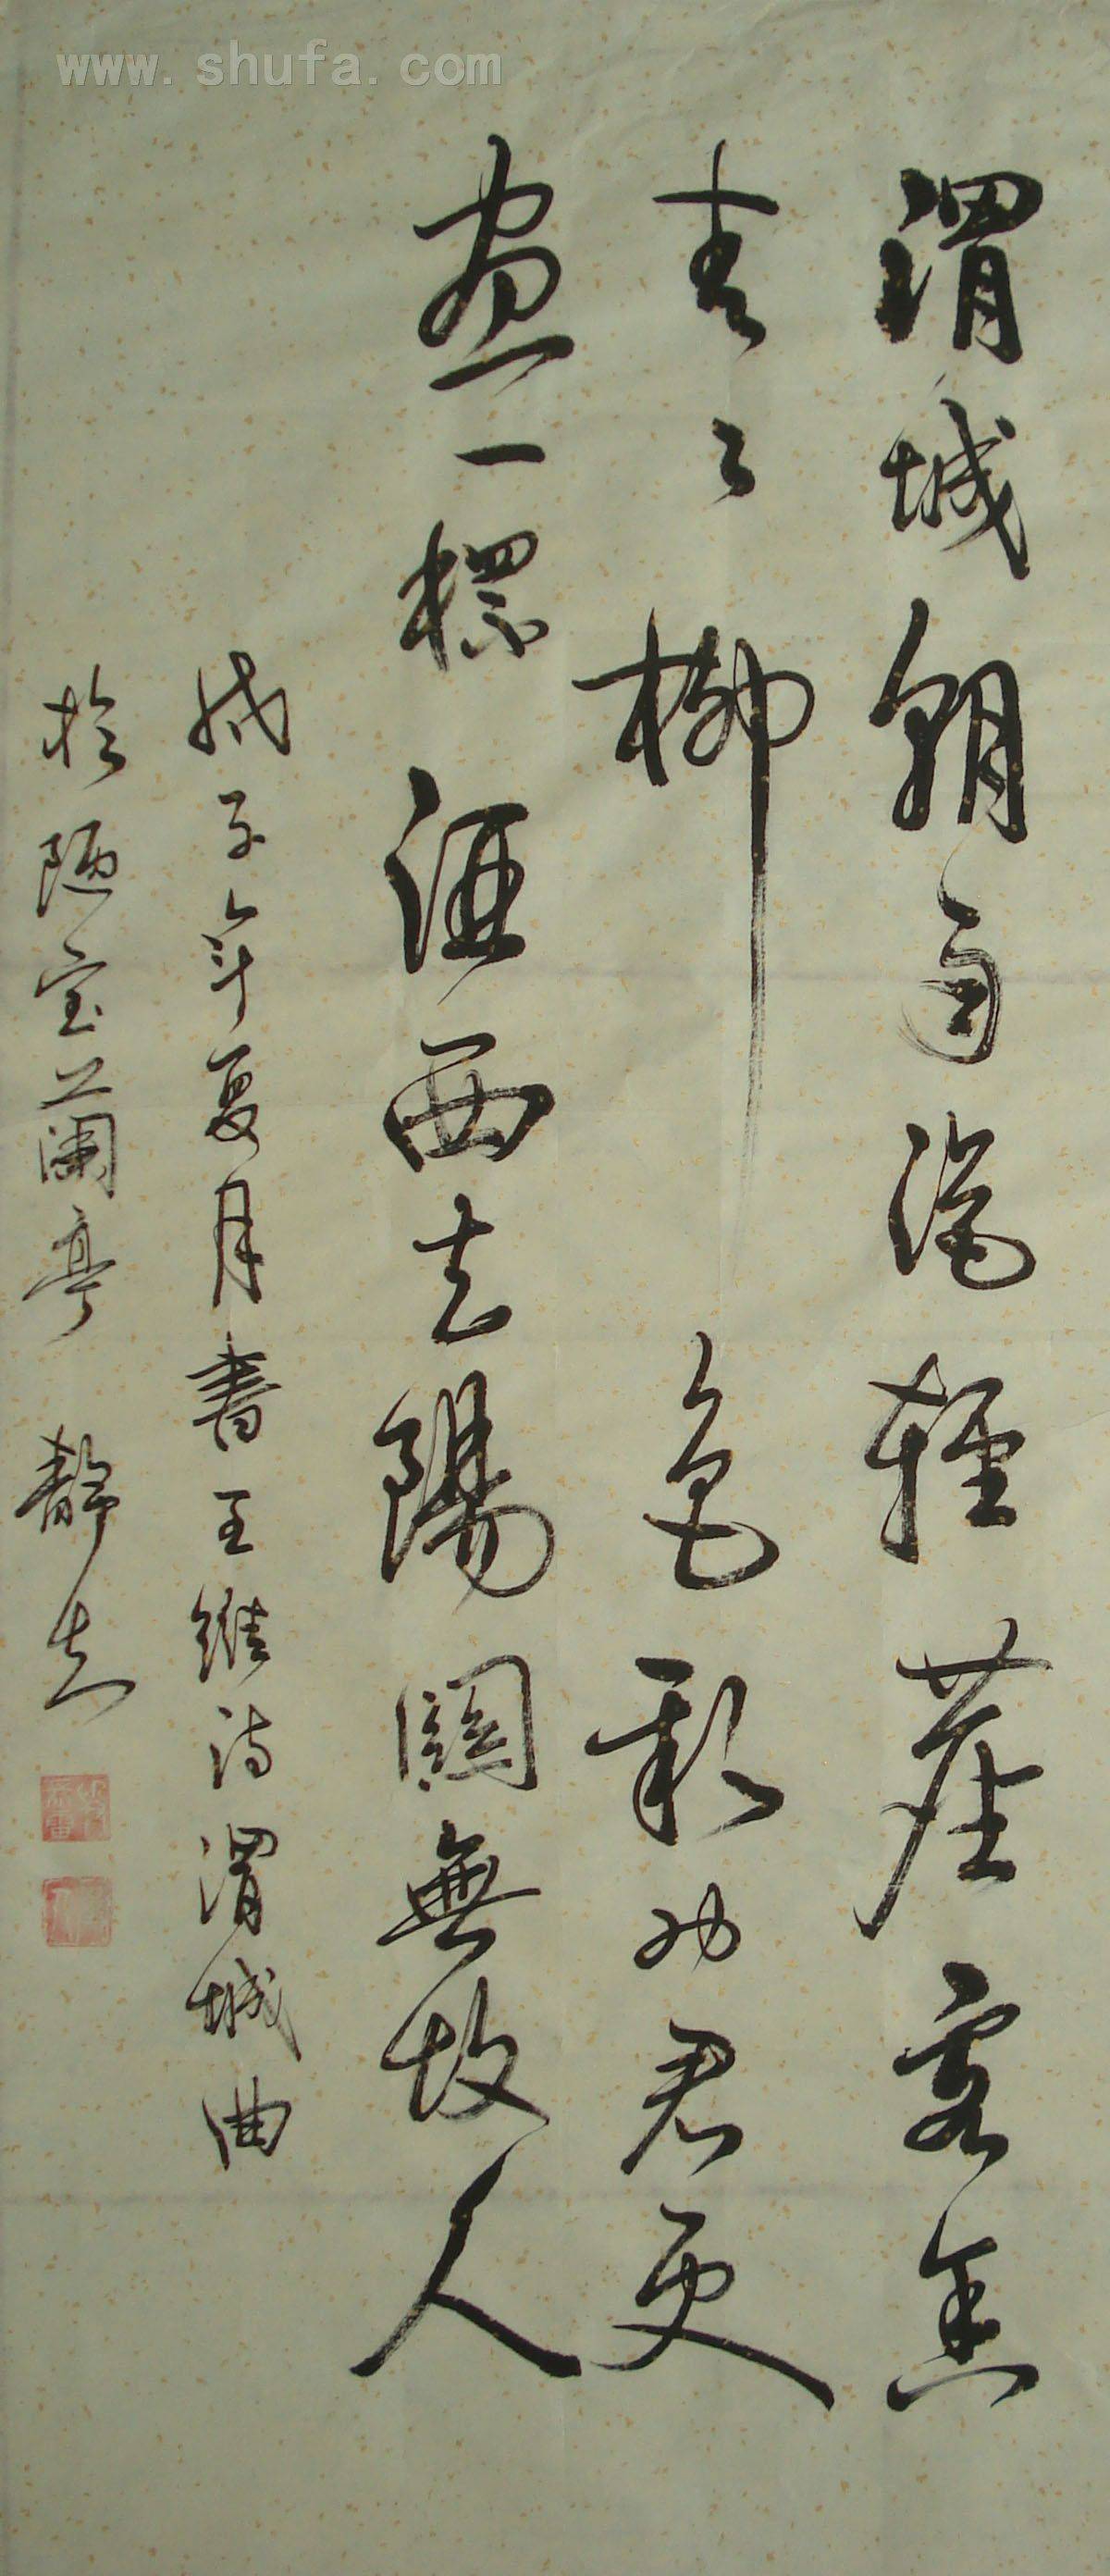 www.shufa.com
渭城朝雨浥輕塵客舍
青々柳色新劝君更
盡一杯酒西出陽關無故人
戊子年夏月書王維诗渭城曲
於陋室蘭亭 靜